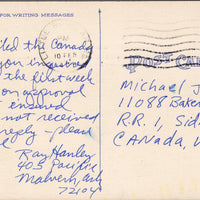 FOR WRITING MESSAGES
iled the Canada
you in
the first week
on approval
issued
not received
reply - please
Ray Hanley
405 Pacific
Malvern, Ark
72104
PM
10
POST CAR
Michael J
11088 Baker
R.R. 1, Sid
CANADA, V